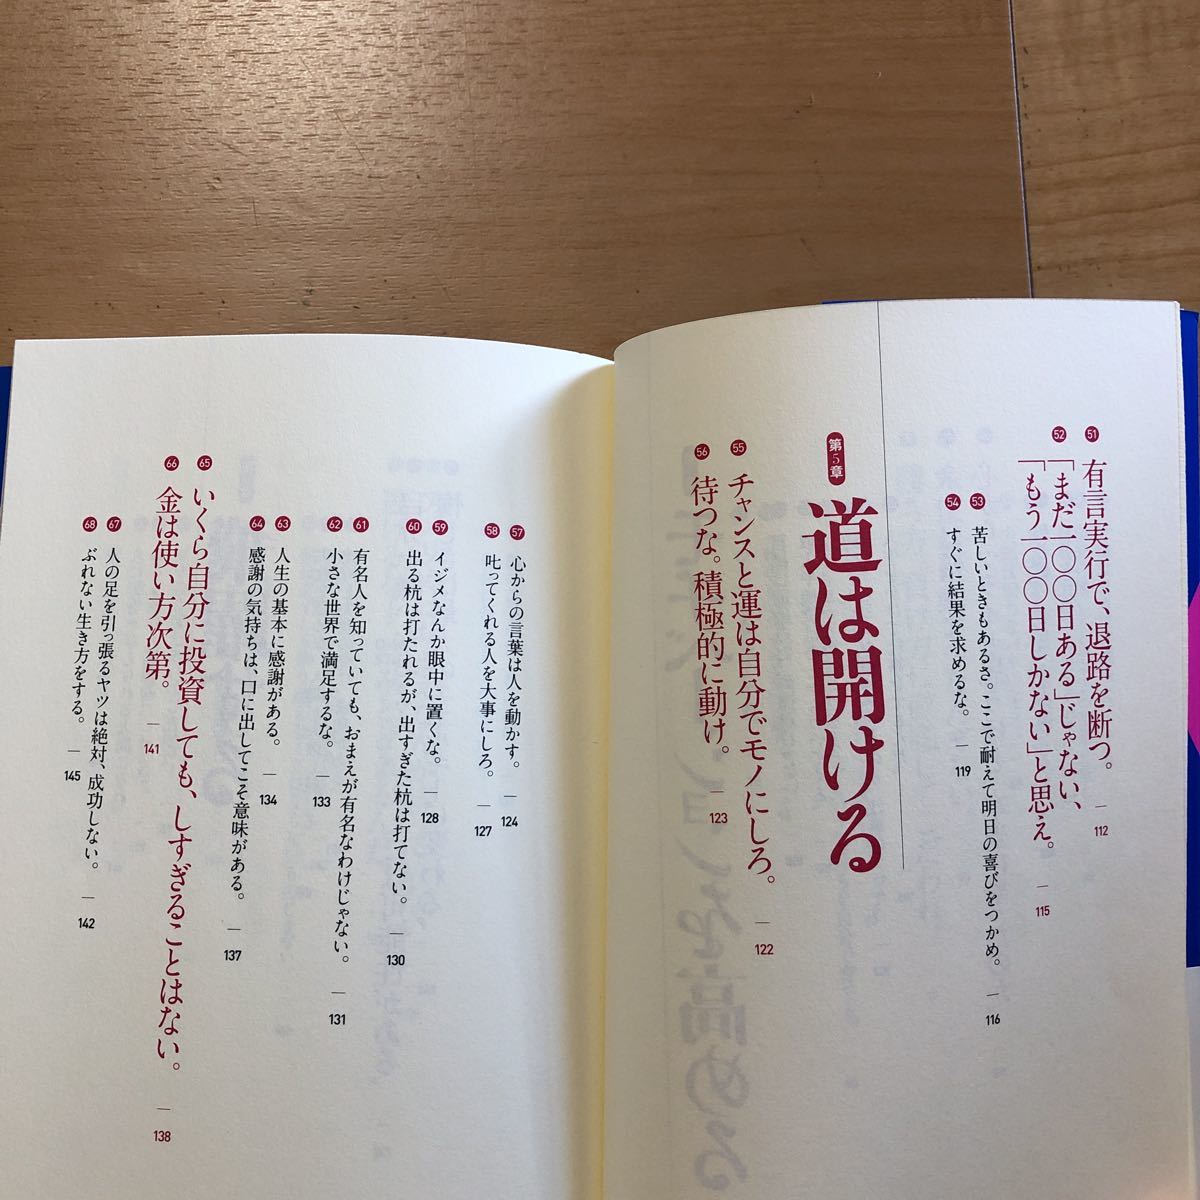 51 有言実行で、退路を断つ。 112
52 「まだ一〇〇日ある」じゃない、
「もう一〇〇日しかない」と思え。 115
53 苦しいときもあるさ。ここで耐えて明日の喜びをつかめ。 116
54 すぐに結果を求めるな。 119
第5章
道は開ける
55 チャンスと運は自分でモノにしろ。 122
56 待つな。積極的に動け。 123
57 心からの言葉は人を動かす。 124
58 叱ってくれる人を大事にしろ。 127
59 イジメなんか眼中に置くな。 128
60 出る杭は打たれるが、出すぎた杭は打てない。 130
61 有名人を知っていても、おまえが有名なわけじゃない。 131
62 小さな世界で満足するな。 133
63 人生の基本に感謝がある。 134
64 感謝の気持ちは、口に出してこそ意味がある。 137
65 いくら自分に投資しても、しすぎることはない。 138
66 金は使い方次第。 141
67 人の足を引っ張るヤツは絶対、成功しない。 142
68 ぶれない生き方をする。 145